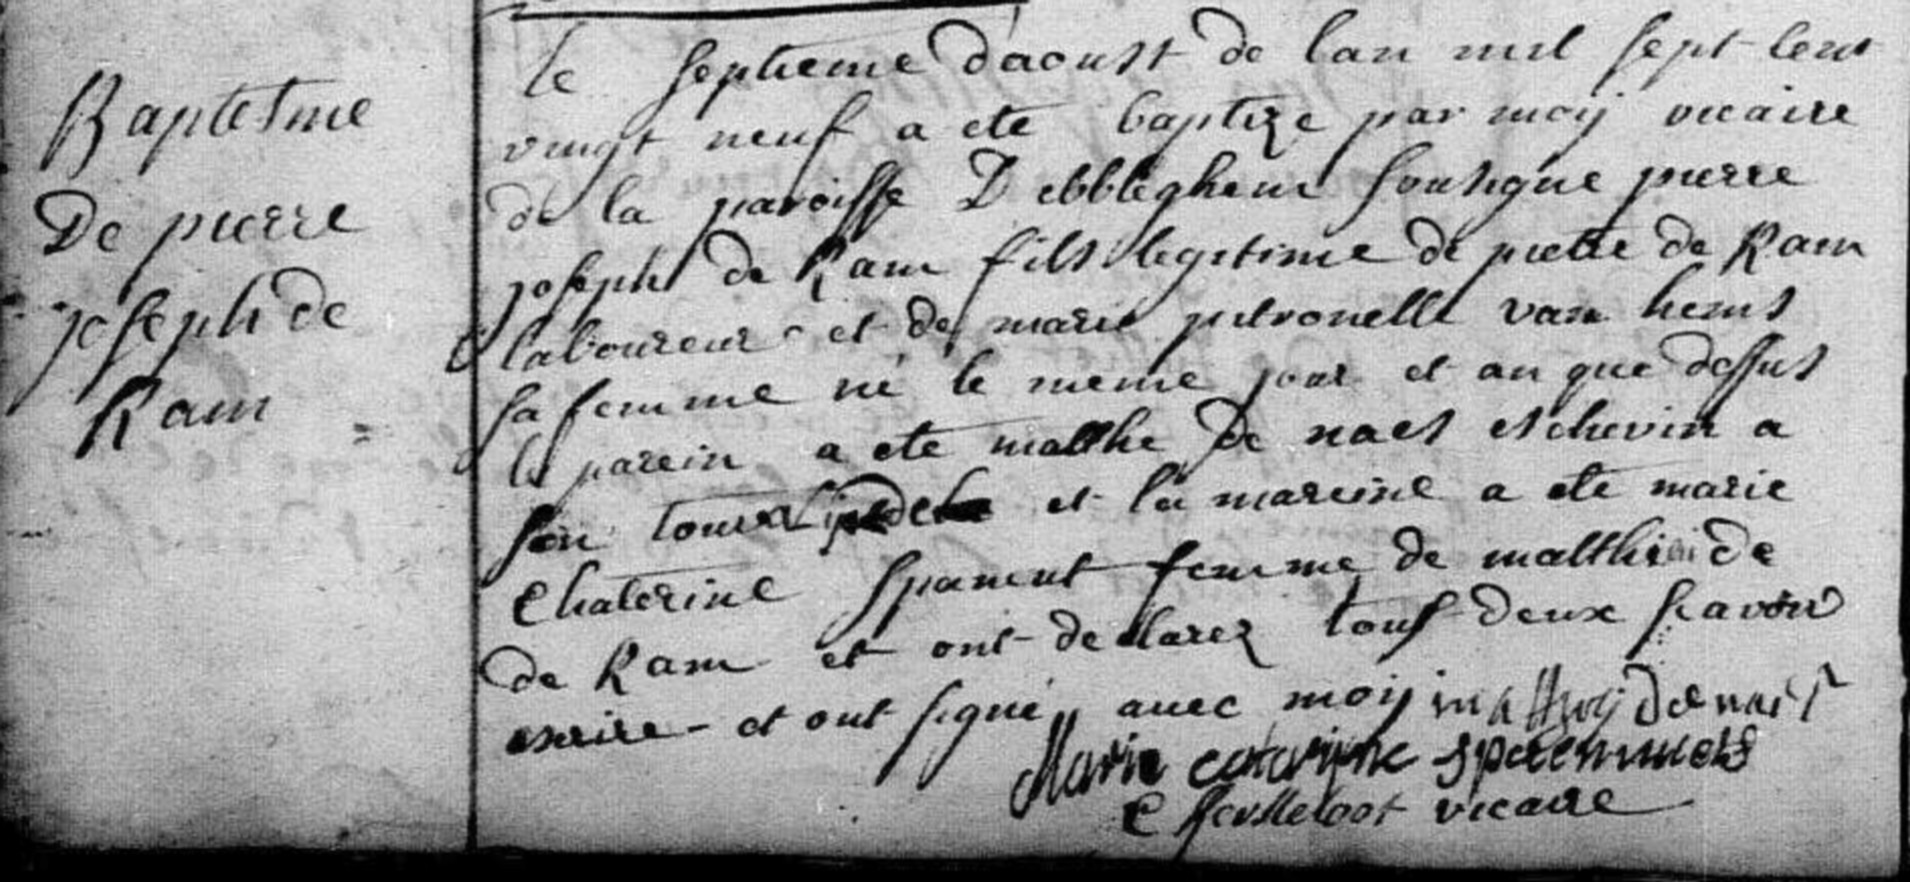 Baptesme
De pierre
joseph de
Ram
le septieme d'aoust de lan mil sept cent
vingt neuf a ete baptize par moij vicaire
de la paroisse D'ebbleghem sousigne pierre
joseph de Ram fils legitime de pierre de Ram
laboureur et de marie petronelle van hems
sa femme né le meme jour et an que dessus
le parein a ete matthe De naes eschevin a
son tour et la mareine a ete marie
Chaterine spanent femme de matthi de
de Ram et ont declarez tous deux scavoir
escrire et ont signé avec moij matthij de naes
Marie catarijne
vicaire